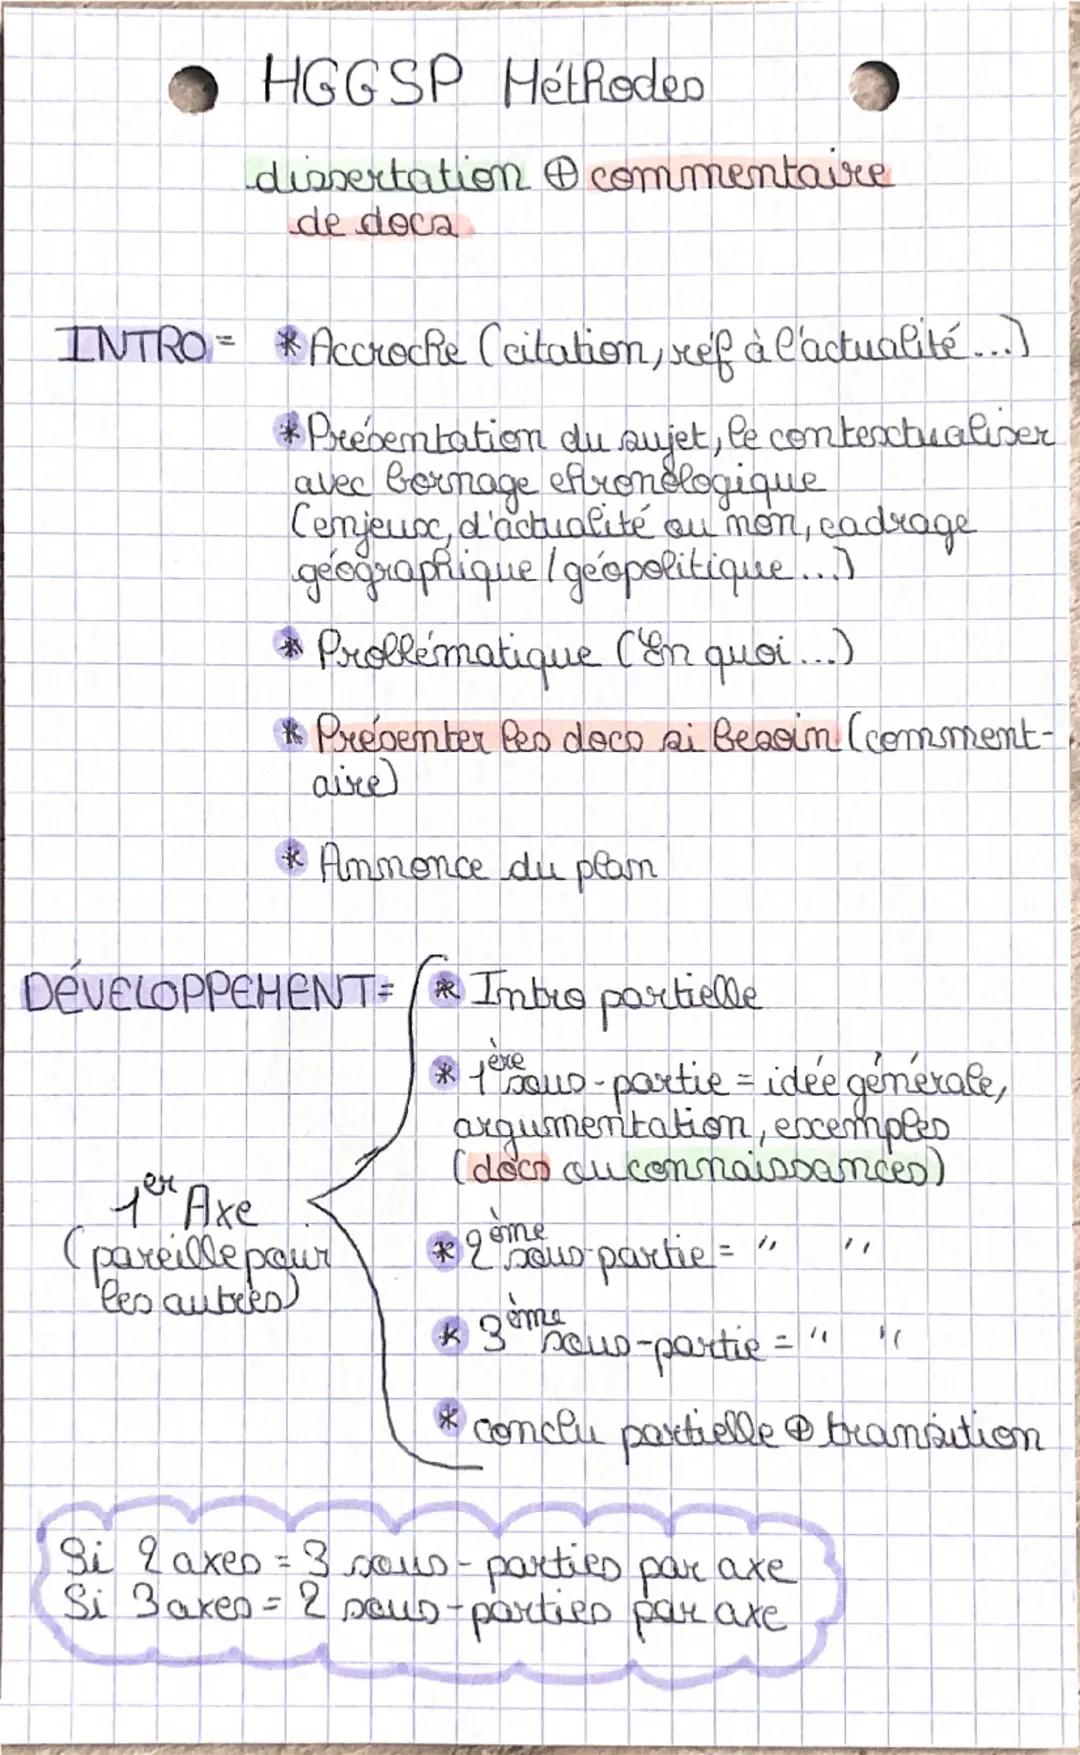 HGGSP Méthodes
dissertation ⊕ commentaire
de docs
INTRO = * Accroche (citation, réf à l'actualité...)
* Présentation du sujet, le contextualiser
avec bornage chronologique
(enjeux, d'actualité ou non, cadrage
géographique / géopolitique...)
* Problématique ("En quoi...)
* Présenter les docs si besoin (comment-
aire)
* Annonce du plan
DÉVELOPPEMENT =
* Intro partielle
* 1ère sous-partie = idée générale,
argumentation, exemples
(docs ou connaissances)
1er Axe
(pareille pour
les autres)
* 2ème sous-partie = " "
* 3ème sous-partie = " "
* conclu partielle ⊕ transition
Si 2 axes = 3 sous-parties par axe
Si 3 axes = 2 sous-parties par axe